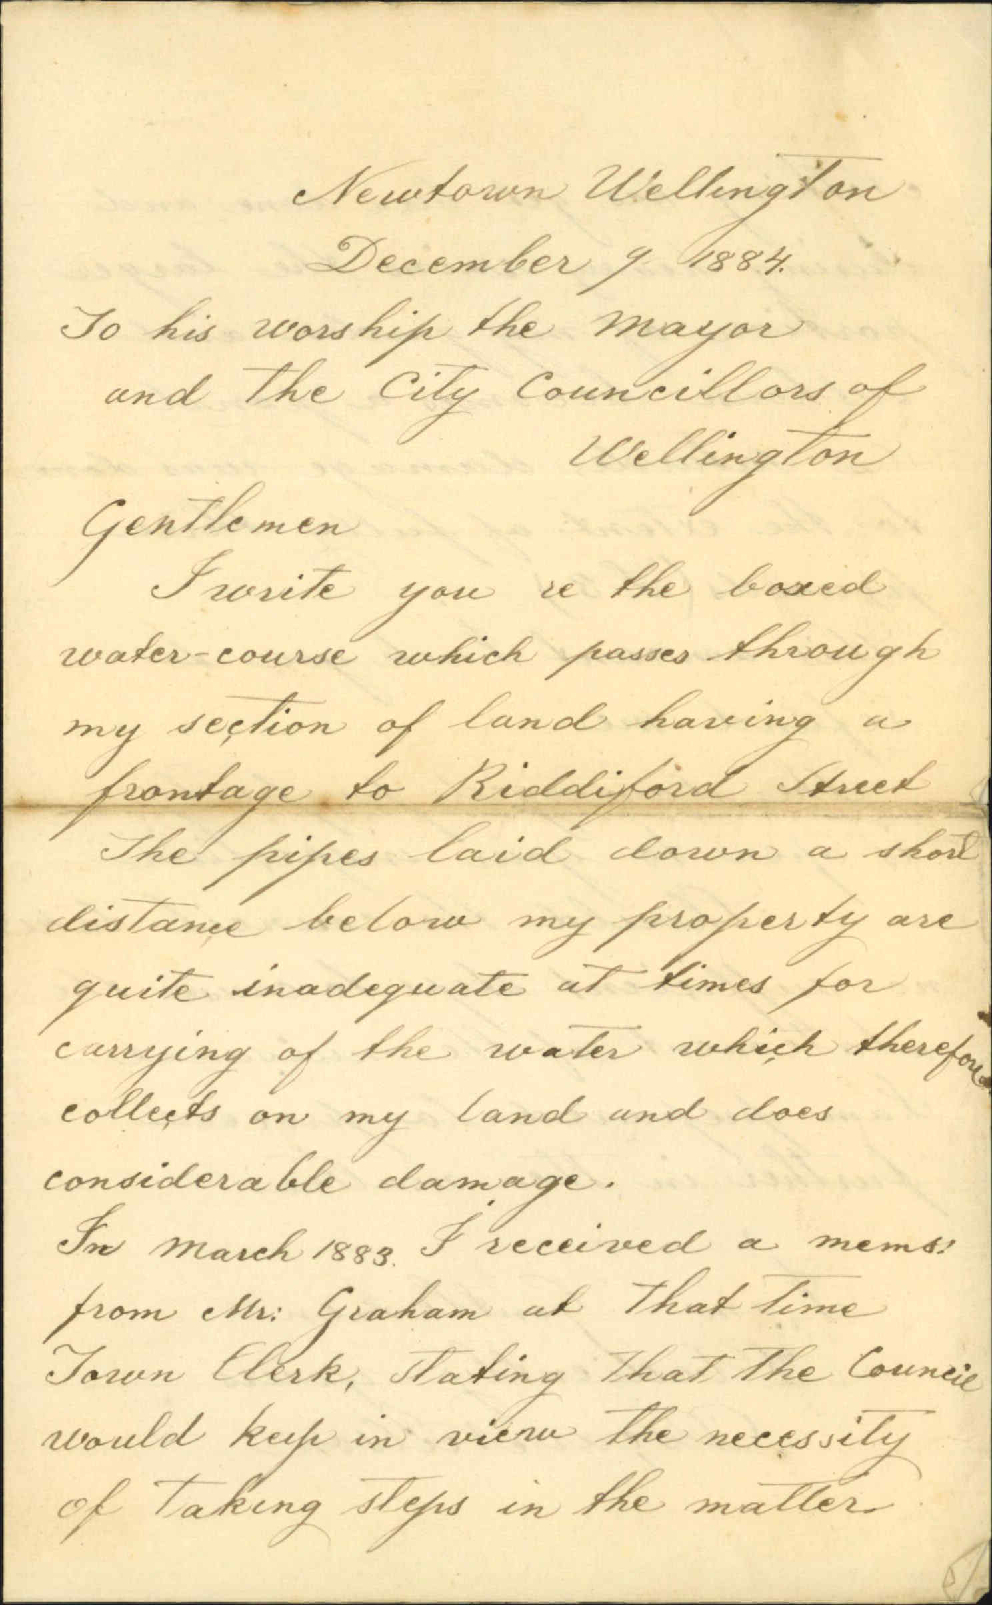 Newtown Wellington
December 9 1884.
To his worship the Mayor
and the City Councillors of
Wellington
Gentlemen
I write you re the boxed
water-course which passes through
my section of land having a
frontage to Riddiford Street
The pipes laid down a short
distance below my property are
quite inadequate at times for
carrying of the water which therefore
collects on my land and does
considerable damage.
In March 1883. I received a memo:
from Mr: Graham at that time
Town Clerk, stating that the Council
would keep in view the necessity
of taking steps in the matter